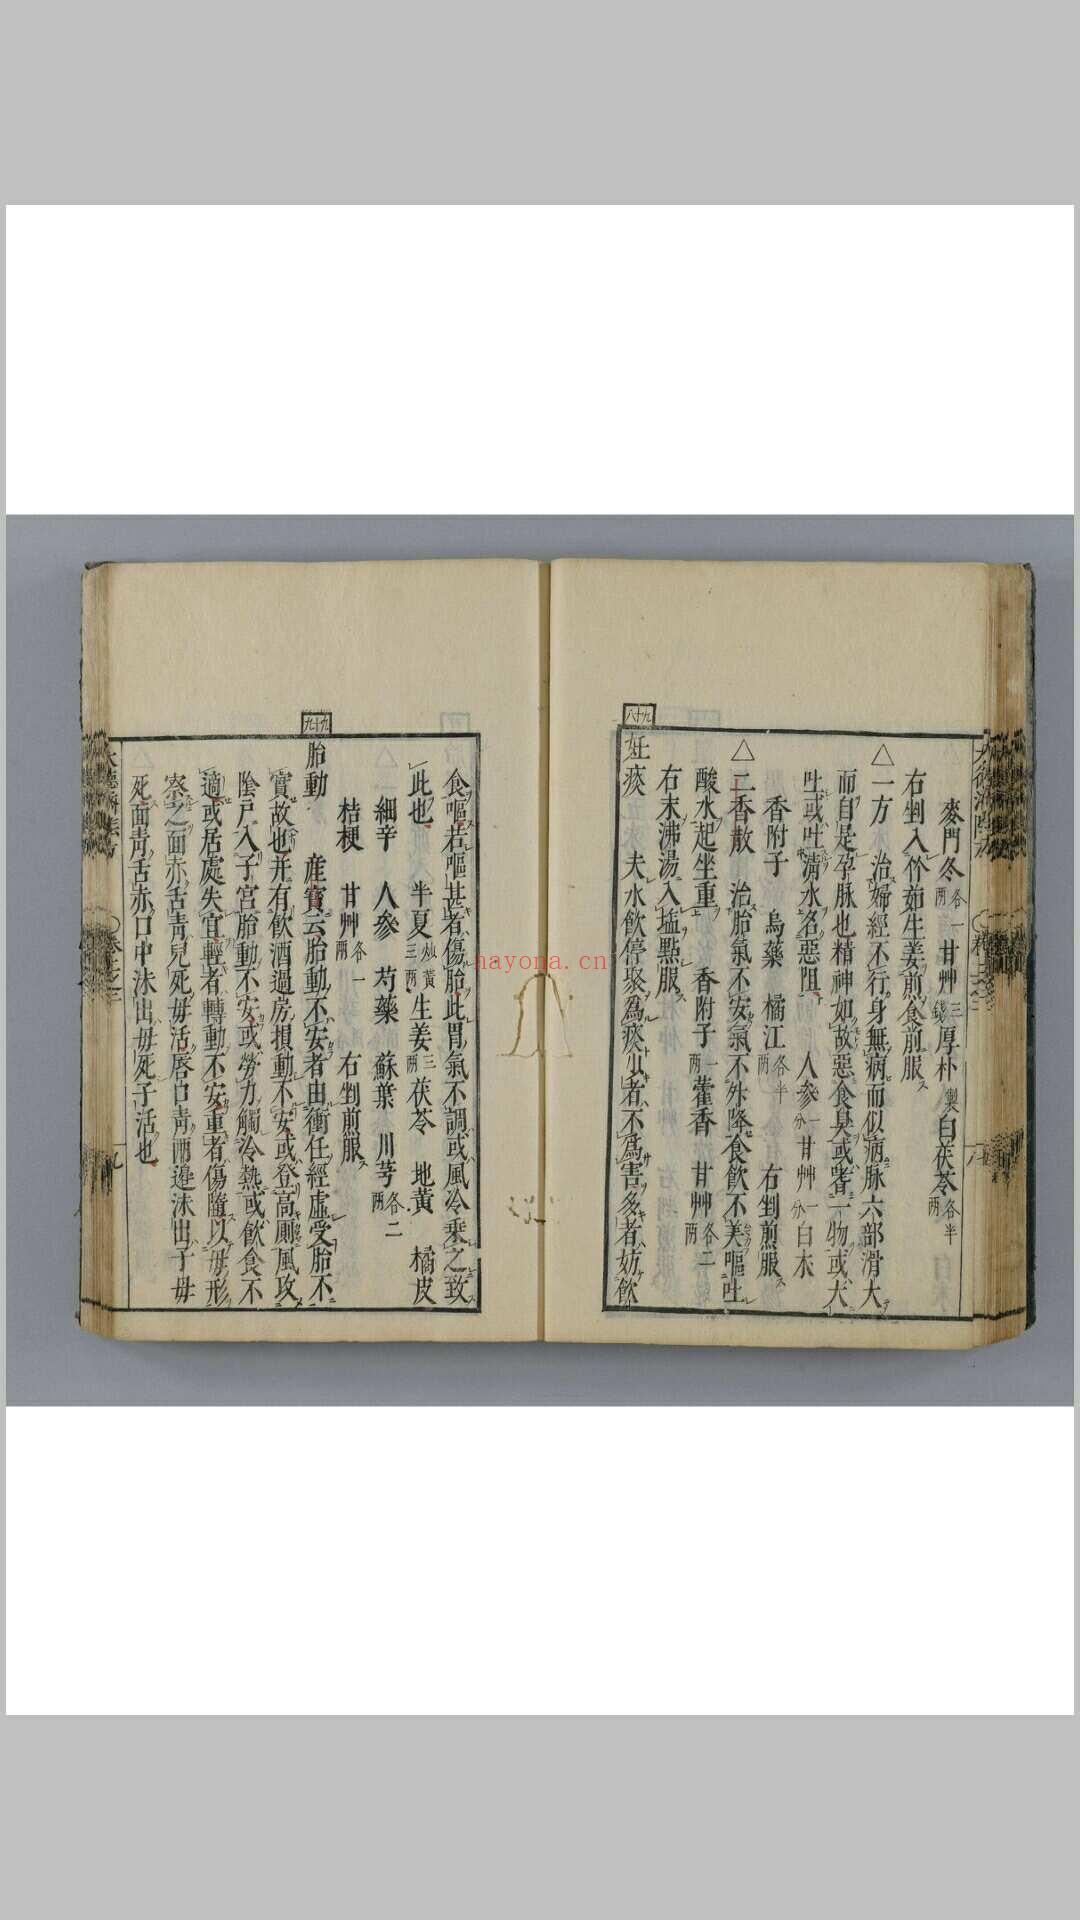 麥門冬各一两甘艸三錢厚朴製白茯苓各半两
右剉入竹茹生姜煎食前服
△一方 治婦經不行身無病而似病脉六部滑大
而自是孕脉也精神如故惡食臭或嗜一物或大
吐或吐清水名惡阻 人參一分甘艸一分白朮
香附子 烏藥 橘江各半两 右剉煎服
△二香散 治胎氣不安氣不升降食飲不美嘔吐
酸水起坐重 香附子一两藿香 甘艸各二两
右末沸湯入塩點服
九十八
妊痰 夫水飲停聚為痰少者不為害多者妨飲
食嘔若嘔甚者傷胎此胃氣不調或風冷乘之致
此也 半夏三两生姜三两茯苓 地黄 橘皮
細辛 人參 芍藥 蘇葉 川芎各二两
桔梗 甘艸各一两 右剉煎服
九十九
胎動 産寳云胎動不安者由衝任經虛受胎不
實故也并有飲酒過房損動不安或登高厠風攻
陰戸入子宮胎動不安或勞力觸冷熱或飲食不
適或居處失宜輕者轉動不安重者傷隨以母形
察之面赤舌靑兒死母活唇口靑兩邉沫出子母
死面靑舌赤口中沫出母死子活也
九
nayona.cn